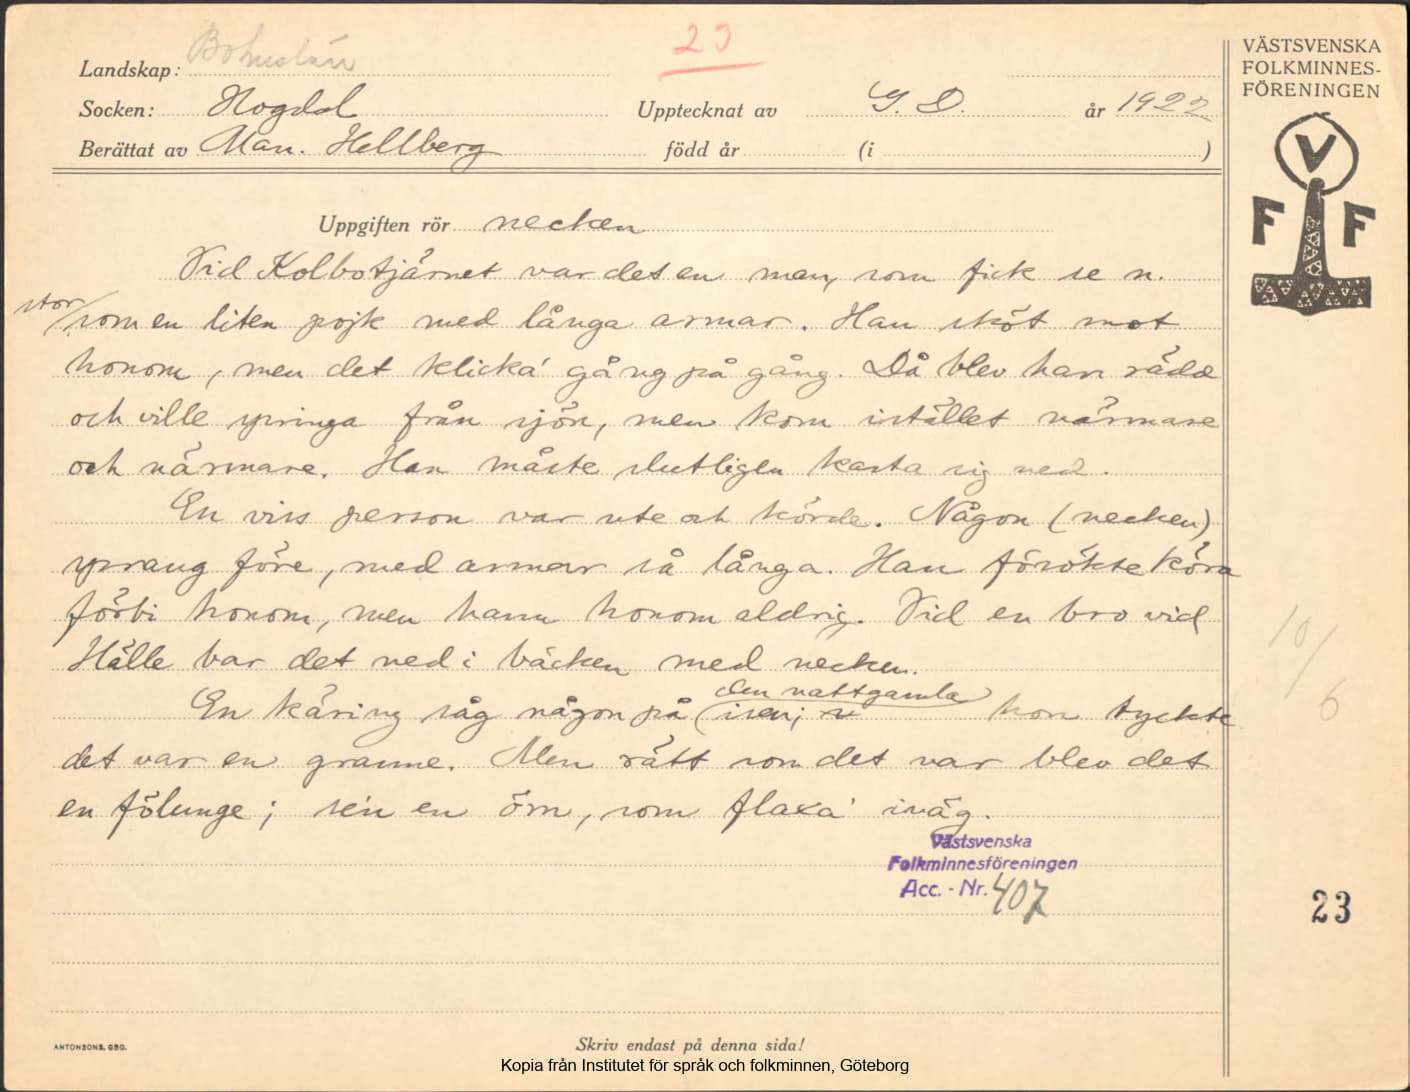 Landskap: Bohuslän
23
Socken: Hogdal Upptecknat av G. D. år 1922
Berättat av Man. Hellberg född år (i )
VÄSTSVENSKA
FOLKMINNES-
FÖRENINGEN
V
F F
Uppgiften rör necken
Vid Kolbotjärnet var det en man, som fick se n.
stor/som en liten pojk med långa armar. Han sköt mot
honom, men det klicka' gång på gång. Då blev han rädd
och ville springa från sjön, men kom istället närmare
och närmare. Han måste slutligen kasta sig ned.
En viss person var ute och körde. Någon (necken)
sprang före, med armar så långa. Han försökte köra
förbi honom, men hann honom aldrig. Vid en bro vid
Hälle bar det ned i bäcken med necken.
den nattgamla
En käring såg någon på (isen; hon tyckte
det var en granne. Men rätt som det var blev det
en fölunge; se'n en örn, som flaxa' iväg.
Västsvenska
Folkminnesföreningen
Acc. - Nr. 407
10/6
23
ANTONSONS, GBG.
Skriv endast på denna sida!
Kopia från Institutet för språk och folkminnen, Göteborg